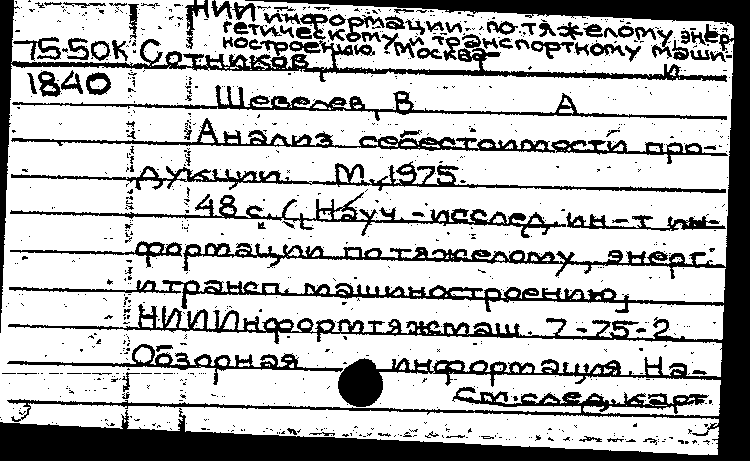 НИИ информации по тяжелому, энер-
гетическому и транспортному маши-
ностроению. Москва
75-50К Сотников, И
1840
Шевелев, В А
Анализ себестоимости про-
дукции. М., 1975.
48 с. (Науч.-исслед. ин-т ин-
формации по тяжелому, энерг.
и трансп. машиностроению,
НИИИнформтяжмаш. 7-75-2.
Обзорная информация. На-
См. след. карт.